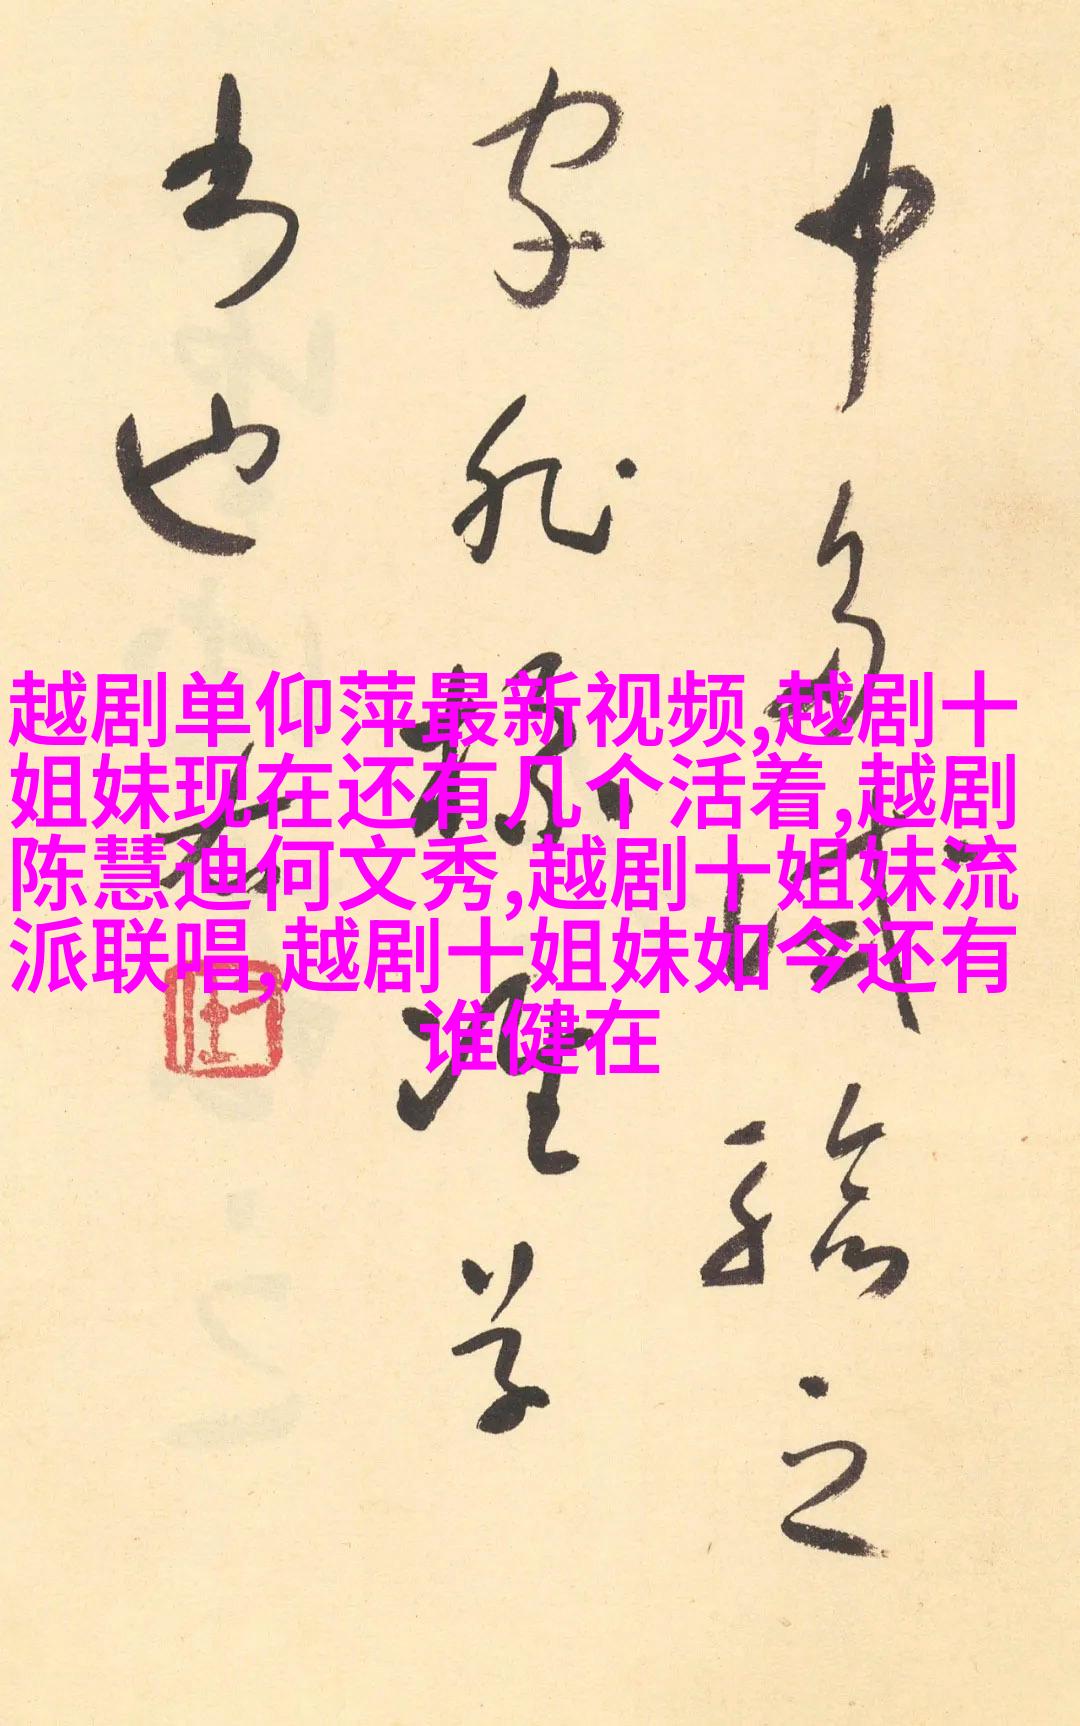 越剧单仰萍最新视频,越剧十
姐妹现在还有几个活着,越剧
陈慧迪何文秀,越剧十姐妹流
派联唱,越剧十姐妹如今还有
谁健在
中多之
非理学
也